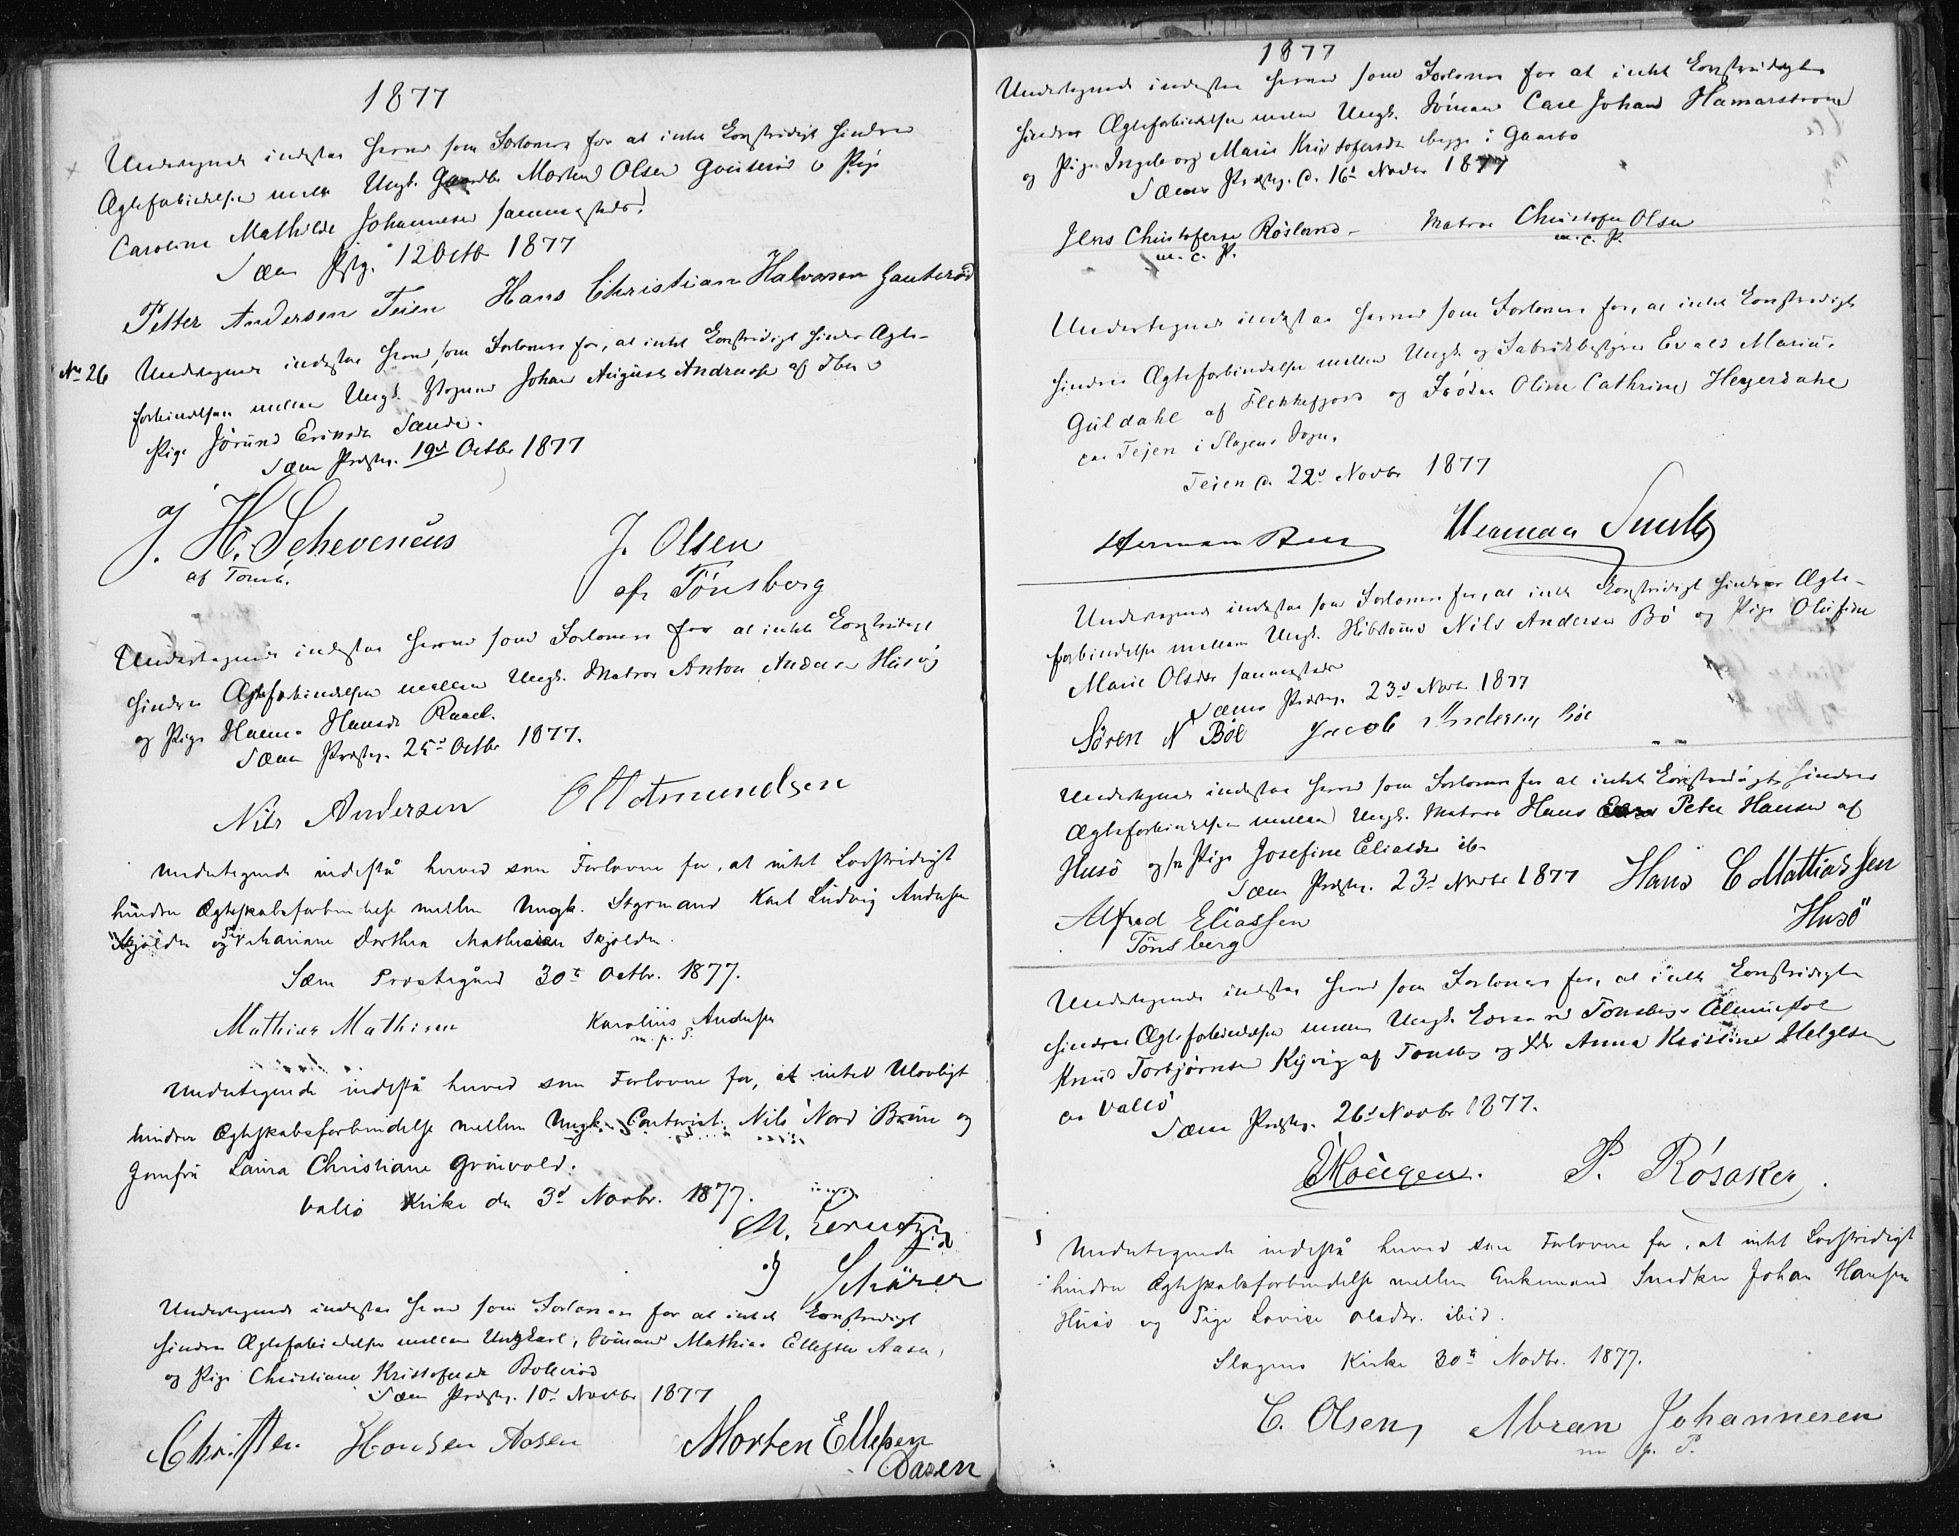 1877
Undertegnede indestaa herved som Forlovere for at intet Lovstridigt hindrer
Ægteforbindelsen mellem Ungk. Morten Olsen Gauterød og Pige
Caroline Mathilde Johannesen sammesteds.
Sæm Prstg. 12 Octb 1877
Petter Andersen Teien Hans Christian Halvorsen Gauterød
No 26 Undertegnede indestaa herved som Forlovere for, at intet Lovstridigt hindrer Ægte-
forbindelsen mellem Ungk. Johan August Andreasen af
Pige Jørund Eriksdr Sande.
Sæm Prstg. 19d Octbr 1877
J. H. Schevenius J. Olsen
af Tønsb. af Tønsberg
Undertegnede indestaa herved som Forlovere for at intet Lovstridigt
hindrer Ægteforbindelsen mellem Ungk. Matros Anton Andersen Husøy
og Pige Hanna Hansdr Raael.
Sæm Prstg. 25d Octbr 1877.
Nils Andersen O Atmundsen
Undertegnede indestå herved som Forlovere for, at intet Lovstridigt
hindrer Ægteskabsforbindelse mellem Ungk. Styrmand Karl Ludvig Andersen
Skjølden og Mariane Dorthea Mathisen Skjølden.
Sæm Prestegård 30te Octbr. 1877.
Mathias Mathisen Karolius Andersen
m. p. P.
Undertegnede indestå herved som Forlovere for, at intet Ulovligt
hindrer Ægteskabsforbindelse mellem Ungk. Contorist Nils Nord Bruun og
Jomfru Laura Christiane Grünvold.
Vallø Kirke den 3d Novbr. 1877.
M. Lorentzen
Schörer
Undertegnede indestaa herved som Forlovere for at intet Lovstridigt
hindrer Ægteforbindelsen mellem Ungkarl, Sømand Mathias Ellefsen Aasen,
og Pige Christiane Kristofersdr Bolerød
Sæm Prstg. 10d Novbr 1877
Christen Hansen Aasen Morten Ellefsen
Aasen
1877
Undertegnede indestaa herved som Forlovere for at intet Lovstridigt
hindrer Ægteforbindelsen mellem Ungk. Sømand Carl Johan Hamarstrøm
og Pige Ingeborg Marie Kristofersdr begge i Gaarbo
Sæm Prstg. d. 16d Novbr 1877
Jens Christofersen Røsland Matros Christofer Olsen
m. c. P. m. c. P.
Undertegnede indestaa herved som Forlovere for, at intet Lovstridigt
hindrer Ægteforbindelsen mellem Ungk. og Fabrikbestyrer Evald Marius
Guldahl af Flekkefjord og Frøken Oline Cathrine Heyerdahl
af Teien i Slagens Sogn.
Teien d. 22d Novbr 1877
Herman Herman Smith
Undertegnede indestaa som Forlovere for, at intet Lovstridigt hindrer Ægte-
forbindelse mellem Ungk. Nils Andersen Bø og Pige Olufine
Marie Olsdr sammesteds
Sæm Prstg. 23d Novbr 1877
Søren N Bøe Jacob Andersen Bøe
Undertegnede indestaa herved som Forlovere for at intet Lovstridigt hindrer
Ægteforbindelsen mellem Ungk. Matros Hans Peter Hansen af
Husø og Pige Josefine Eliasdr ib.
Sæm Prstg. 23d Novbr 1877 Hans C Mathiassen
Alfred Eliassen Husö
Tönsberg
Undertegnede indestaa herved som Forlovere for, at intet Lovstridigt
hindrer Ægteforbindelsen mellem Ungk. Lærer ved Tønsbergs Almueskole
Knud Torbjørnsen Kyvig af Tønsberg og Anna Kristine Helgesen
af Vallø
Sæm Prstg. 26d Novbr 1877.
Hougen. P. Rósaker.
Undertegnede indestå herved som Forlovere for, at intet Lovstridigt
hindrer Ægteskabsforbindelse mellem Enkemand Snedker Johan Hansen
Husø og Pige Lovise Olsdr. ibid.
Slagens Kirke 30te Novbr. 1877.
C. Olsen, Abran Johannesen
m p. P.